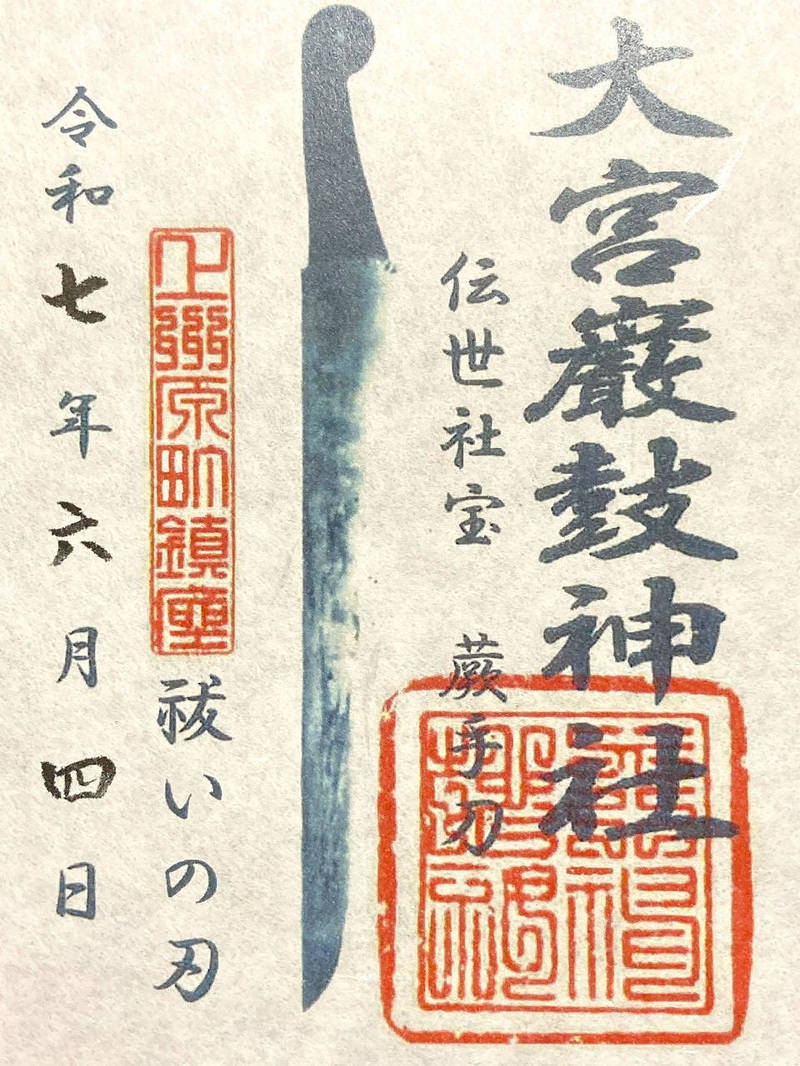 大宮巖鼓神社
伝世社宝　蕨手刀
上州原町鎮座
祓いの刃
令和七年六月四日